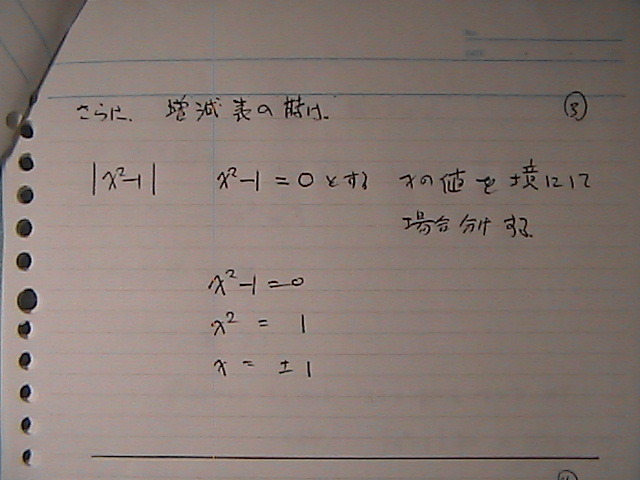 さらに、増減表の時は、 ③
|x²-1| x²-1=0とする xの値を境にして
場合分けする
x²-1=0
x² = 1
x = ±1